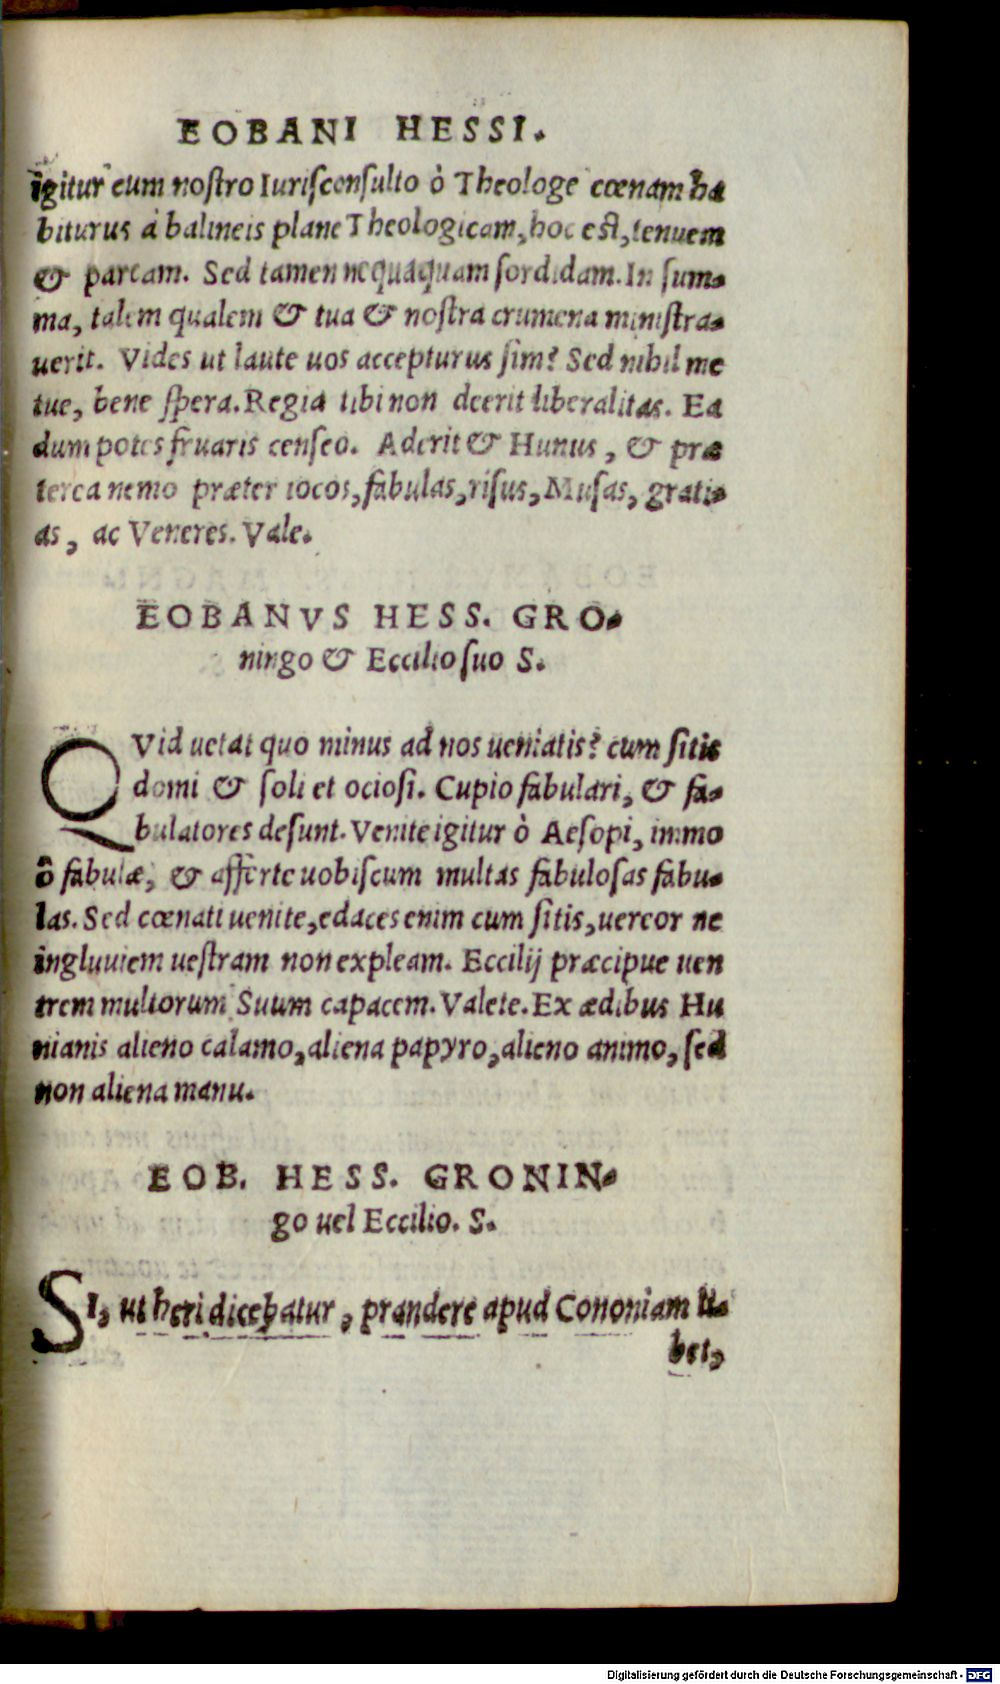 EOBANI HESSI.
igitur cum nostro Iurisconsulto ò Theologe cœnam ha
biturus à balineis plane Theologicam, hoc est, tenuem
& parcam. Sed tamen nequaquam sordidam. In sum-
ma, talem qualem & tua & nostra crumena ministra-
uerit. Vides ut laute uos accepturus sim? Sed nihil me
tue, bene spera. Regia tibi non deerit liberalitas. Ea
dum potes fruaris censeo. Aderit & Hunus, & præ
terea nemo præter iocos, fabulas, risus, Musas, grati-
as, ac Veneres. Vale.
EOBANVS HESS. GRO-
ningo & Eccilio suo S.
QVid uetat quo minus ad nos ueniatis? cum sitis
domi & soli et ociosi. Cupio fabulari, & fa-
bulatores desunt. Venite igitur ò Aesopi, immo
ô fabulæ, & afferte uobiscum multas fabulosas fabu-
las. Sed cœnati uenite, edaces enim cum sitis, uereor ne
ingluuiem uestram non expleam. Eccilij præcipue uen
trem multorum Suum capacem. Valete. Ex ædibus Hu
nianis alieno calamo, aliena papyro, alieno animo, sed
non aliena manu.
EOB. HESS. GRONIN-
go uel Eccilio. S.
SI, ut heri dicebatur, prandere apud Cononiam li-
bet,
Digitalisierung gefördert durch die Deutsche Forschungsgemeinschaft - DFG